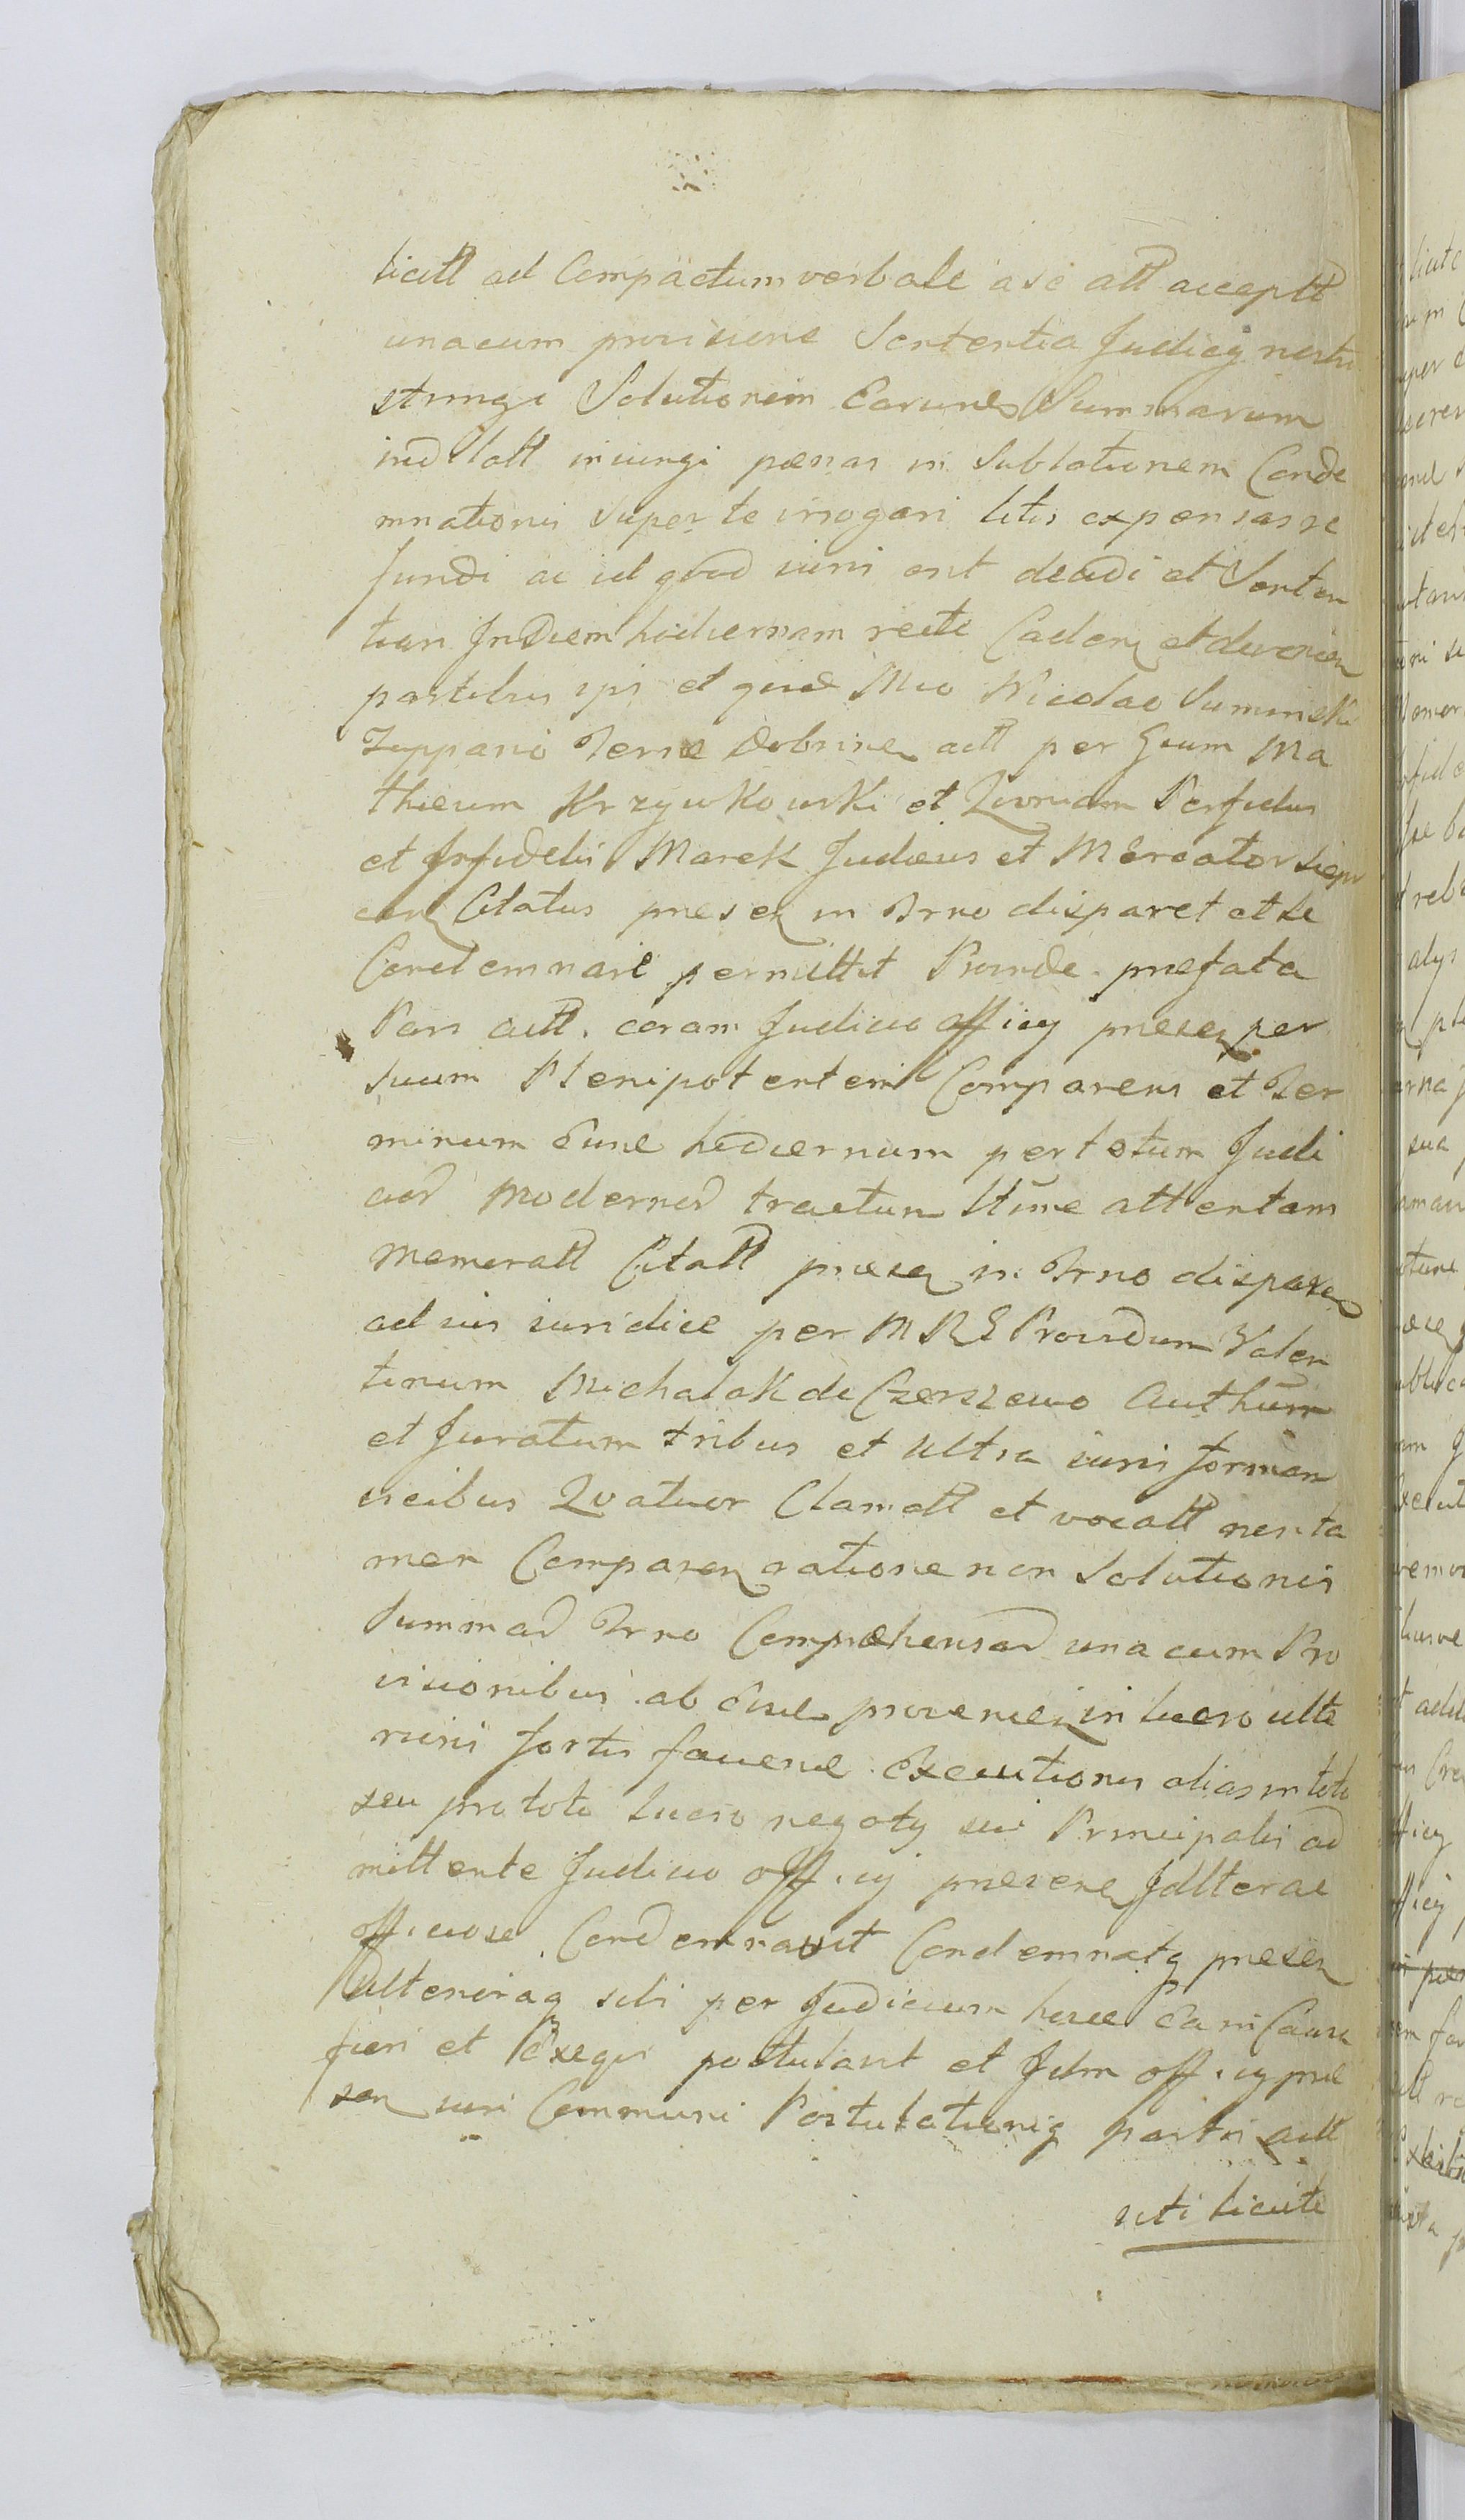 licitt ad Compactum verbale a se att acceptt
unacum provisione Sententia Judicij nostri
stringi Solutionem Earund Summarum
ind Catt iniungi pœnas in Sublationem Conde
mnationis super te irrogari litis expensas re
fundi ac id qvod iuris erit decidi et Senten
tian In Diem hodiernam recte Caden et devenien
partibus ipsi et quid Mco Nicolao Suminski
Zuppario Terræ Dobrinen actt per Gsum Ma
thæum Krzywkowski et Qvoniam Perfidus
et Infidelis Marek Judæus et Mercator
Citatus præsen in Trno disparet et se
Condemnare permittit Proinde præfata
Pars actt. coram Judicio officij præsen per
suum Plenipotentem Comparens et Ter
minum Eund hodiernum per totum Judi
cior modernor tractum attentam
memoratt Citatt præsen in Trno disparen
ad ius iuridice per M R G Providum Valen
tinum Michalak de Czerszewo Authum
et Juratum tribus et ultra iuris formam
vicibus Qvatuor Clamatt et vocatt non ta
men Comparen ratione non Solutionis
Summar Trno Compræhensar una cum Pro
visionibus ab Eisd provenien in lucro ulte
rioris fortis favend Executionis alias in toto
seu pro toto lucro negotij sui Principalis ad
mittente Judicio officij præsenc Idlterae
officiose Condemnavit Condemnatq præsen
Ulterioraq sibi per Judicium hocce Ea in Causa
fieri et Exeqvi postulavit et Jdm officij præ
sen iuri Communi Postulationiq partis actt
uti licite